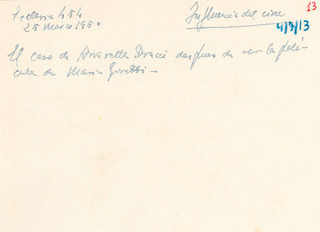 Ecclesia 454
25 Marzo 1950
Influencia del cine
13
4/3/13
El caso de Annarella Bracci después de ver la pelí-
cula de Maria Goretti -